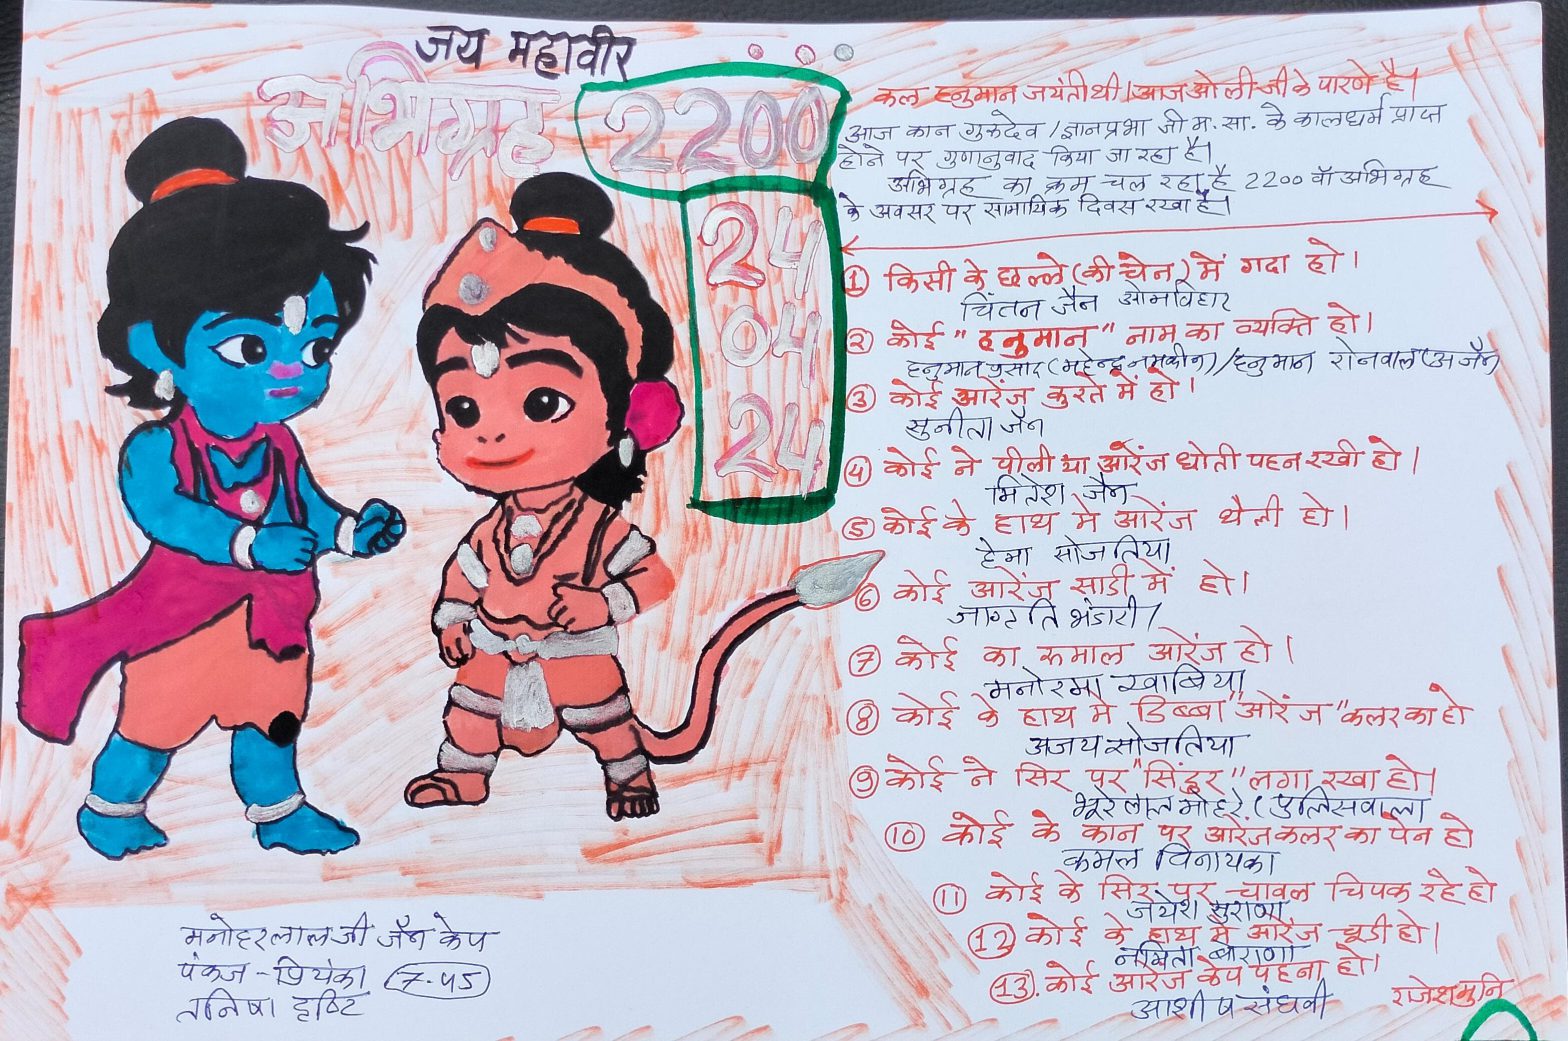 जय महावीर
अभिग्रह
2200
24
04
24
कल हनुमान जयंती थी। आज ओली जी के पारणे है।
आज कान गुरुदेव / ज्ञानप्रभा जी म. सा. के कालधर्म प्राप्त
होने पर गुणानुवाद किया जा रहा है।
अभिग्रह का क्रम चल रहा है 2200 वॉ अभिग्रह
के अवसर पर सामायिक दिवस रखा है।
① किसी के छल्ले (की चेन) में गदा हो।
चिंतन जैन ओमविहार
② कोई "हनुमान" नाम का व्यक्ति हो।
हनुमान प्रसाद (महेन्द्र) / हनुमान सोनवाल
③ कोई आरेंज कुरते में हो।
सुनीता जैन
④ कोई ने पीली या आरेंज धोती पहन रखी हो।
मितेश जैन
⑤ कोई के हाथ मे आरेंज थैली हो।
हेमा सोजतिया
⑥ कोई आरेंज साडी में हो।
जाग्रति भंडारी
⑦ कोई का रुमाल आरेंज हो।
मनोरमा खाबिया
⑧ कोई के हाथ मे डिब्बा "ओरेंज" कलर का हो
अजय सोजतिया
⑨ कोई ने सिर पर "सिंदुर" लगा रखा हो।
भूरेलाल मोहरे. (पुलिसवाला
⑩ कोई के कान पर आरेंज कलर का पेन हो
कमल विनायका
⑪ कोई के सिर पर चावल चिपक रहे हो
जयेश सुराणा
⑫ कोई के हाथ मे आरेंज चूडी हो।
नमिता बोराणा
⑬. कोई आरेंज केप पहना हो।
आशीष संघवी
राजेशमुनि
मनोहरलालजी जैन केप
पंकज - प्रियंका 7.45
तनिषा दृष्टि